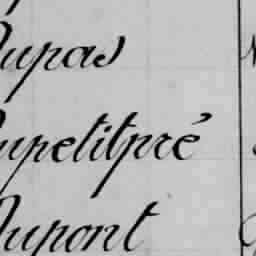 Dupas
Dupetitpré
Dupont